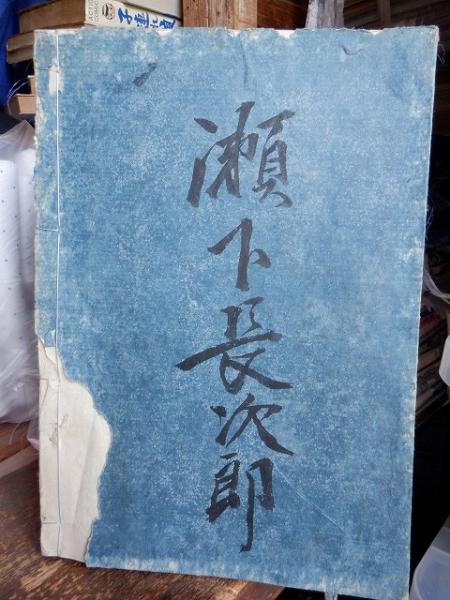 瀬下長次郎